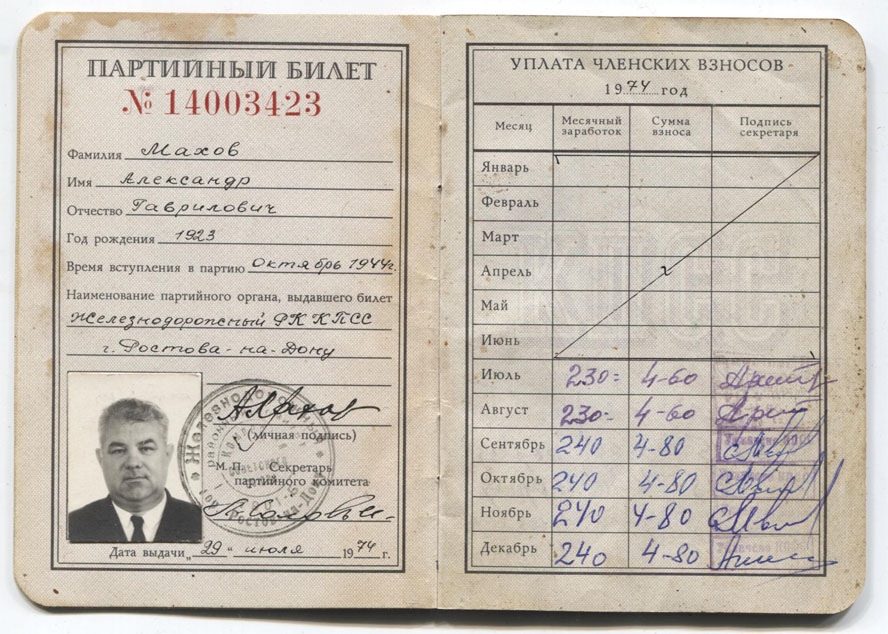 ПАРТИЙНЫЙ БИЛЕТ
№ 14003423
Фамилия Махов
Имя Александр
Отчество Гаврилович
Год рождения 1923
Время вступления в партию октябрь 1944г.
Наименование партийного органа, выдавшего билет
Железнодорожный РК КПСС
г. Ростова-на-Дону
(личная подпись)
М. П. Секретарь
партийного комитета
Дата выдачи „29" июля 1974 г.
УПЛАТА ЧЛЕНСКИХ ВЗНОСОВ
1974 год
Месяц Месячный заработок Сумма взноса Подпись секретаря
Январь
Февраль
Март
Апрель
Май
Июнь
Июль 230= 4-60
Август 230- 4-60
Сентябрь 240 4-80
Октябрь 240 4-80
Ноябрь 240 4-80
Декабрь 240 4-80